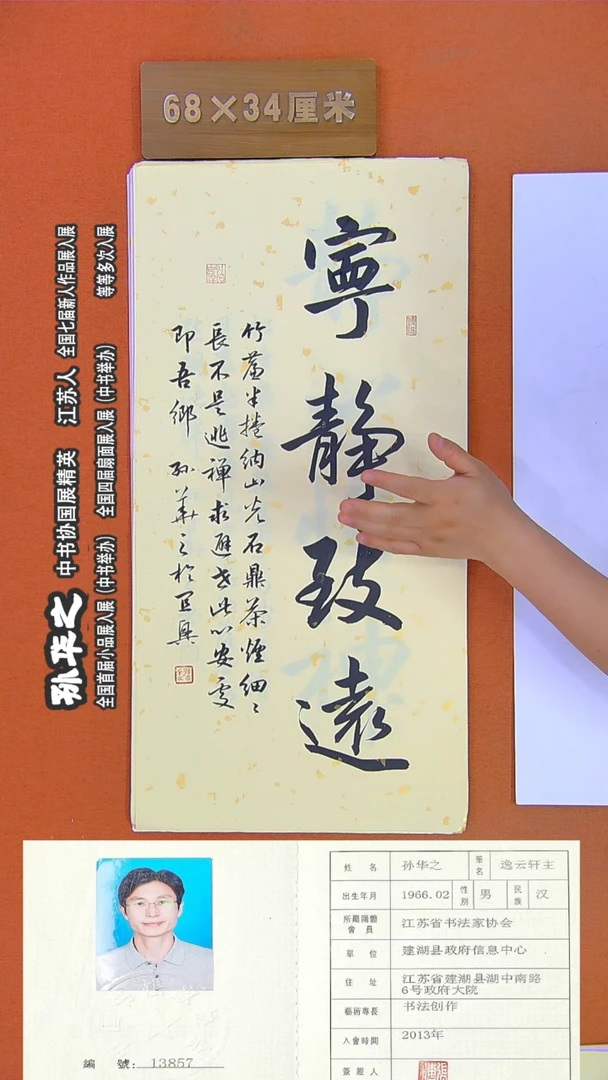 68×34厘米
寧靜致遠
竹簾半捲納山光石鼎茶煙細細
長不是逃禪求避世此心安處
即吾鄉 孫華之於
孙华之 中书协国展精英 江苏人 全国七届新人作品展入展
全国首届小品展入展（中书举办） 全国四届扇面展入展（中书举办） 等等多次入展
姓名 孙华之 筆名 逸云轩主
出生年月 1966.02 性別 男 民族 汉
所屬團體會員 江苏省书法家协会
單位 建湖县政府信息中心
住址 江苏省建湖县湖中南路6号政府大院
藝術專長 书法创作
入會時間 2013年
簽證人
編號：13857